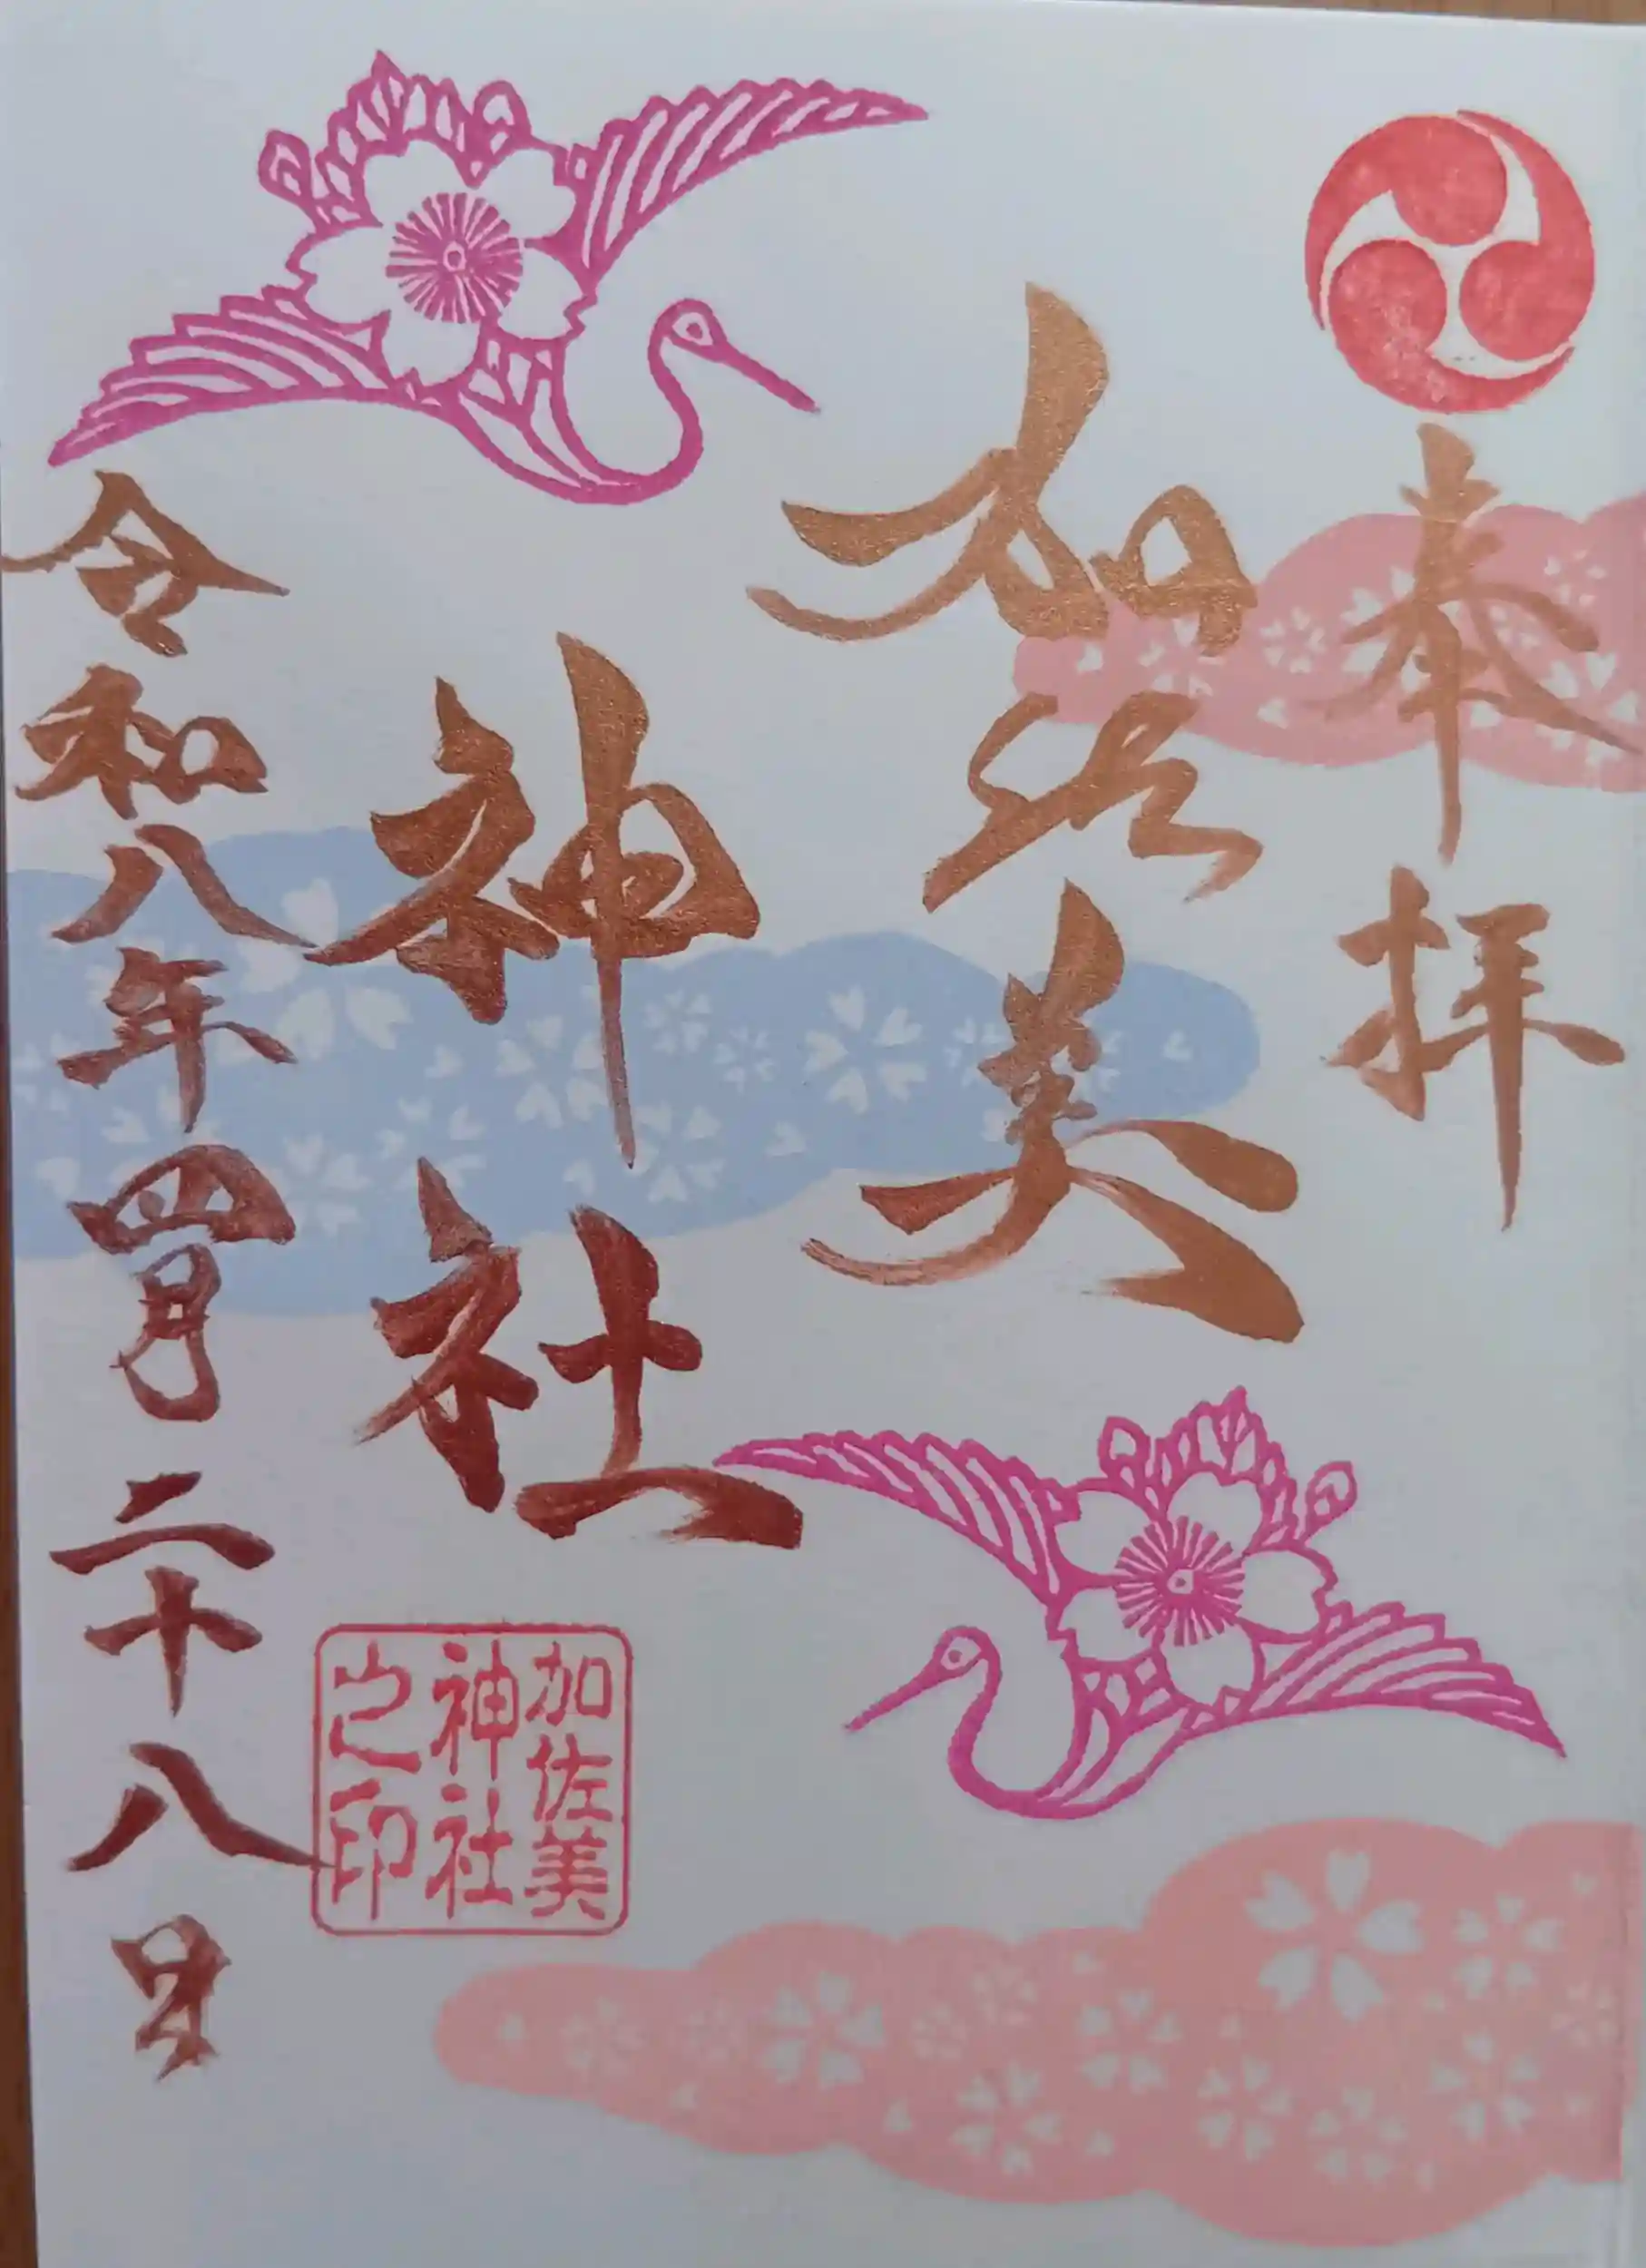 奉拝
加佐美
神社
令和八年四月二十八日
加佐美
神社
之印